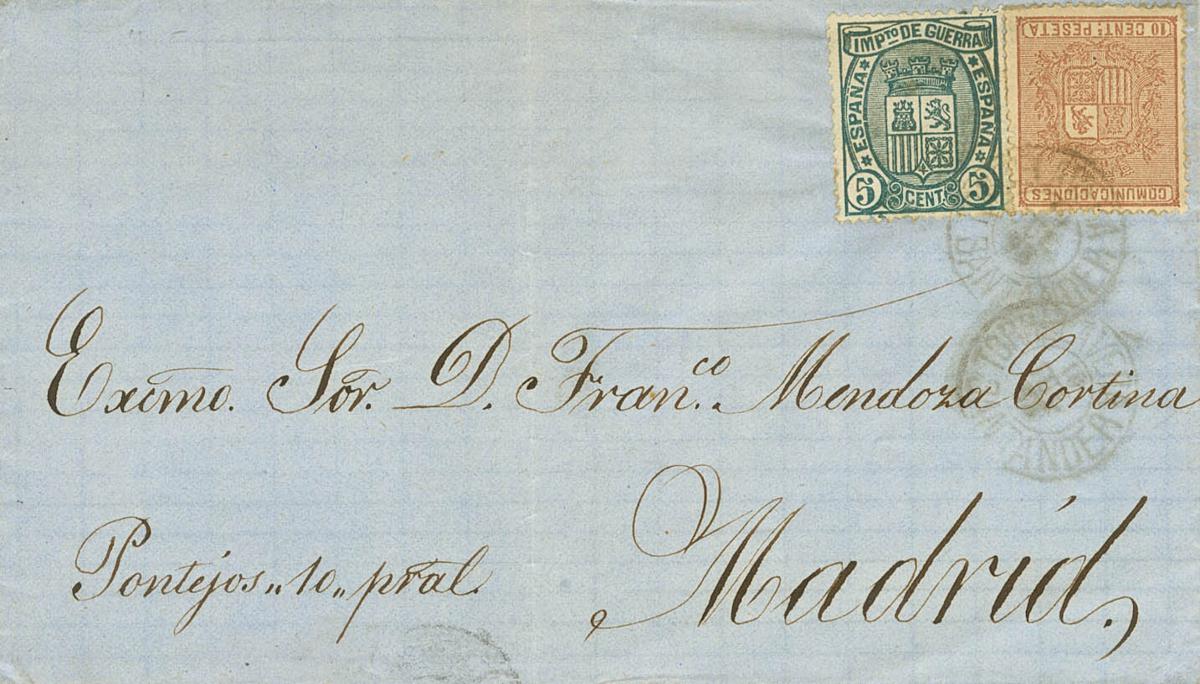 IMPTO DE GUERRA
ESPAÑA
ESPAÑA
5 CENT. 5
10 CENT. PESETA
COMUNICACIONES
Excmo. Sor. D. Franco. Mendoza Cortina
Pontejos „ 10 „ pral.
Madrid.